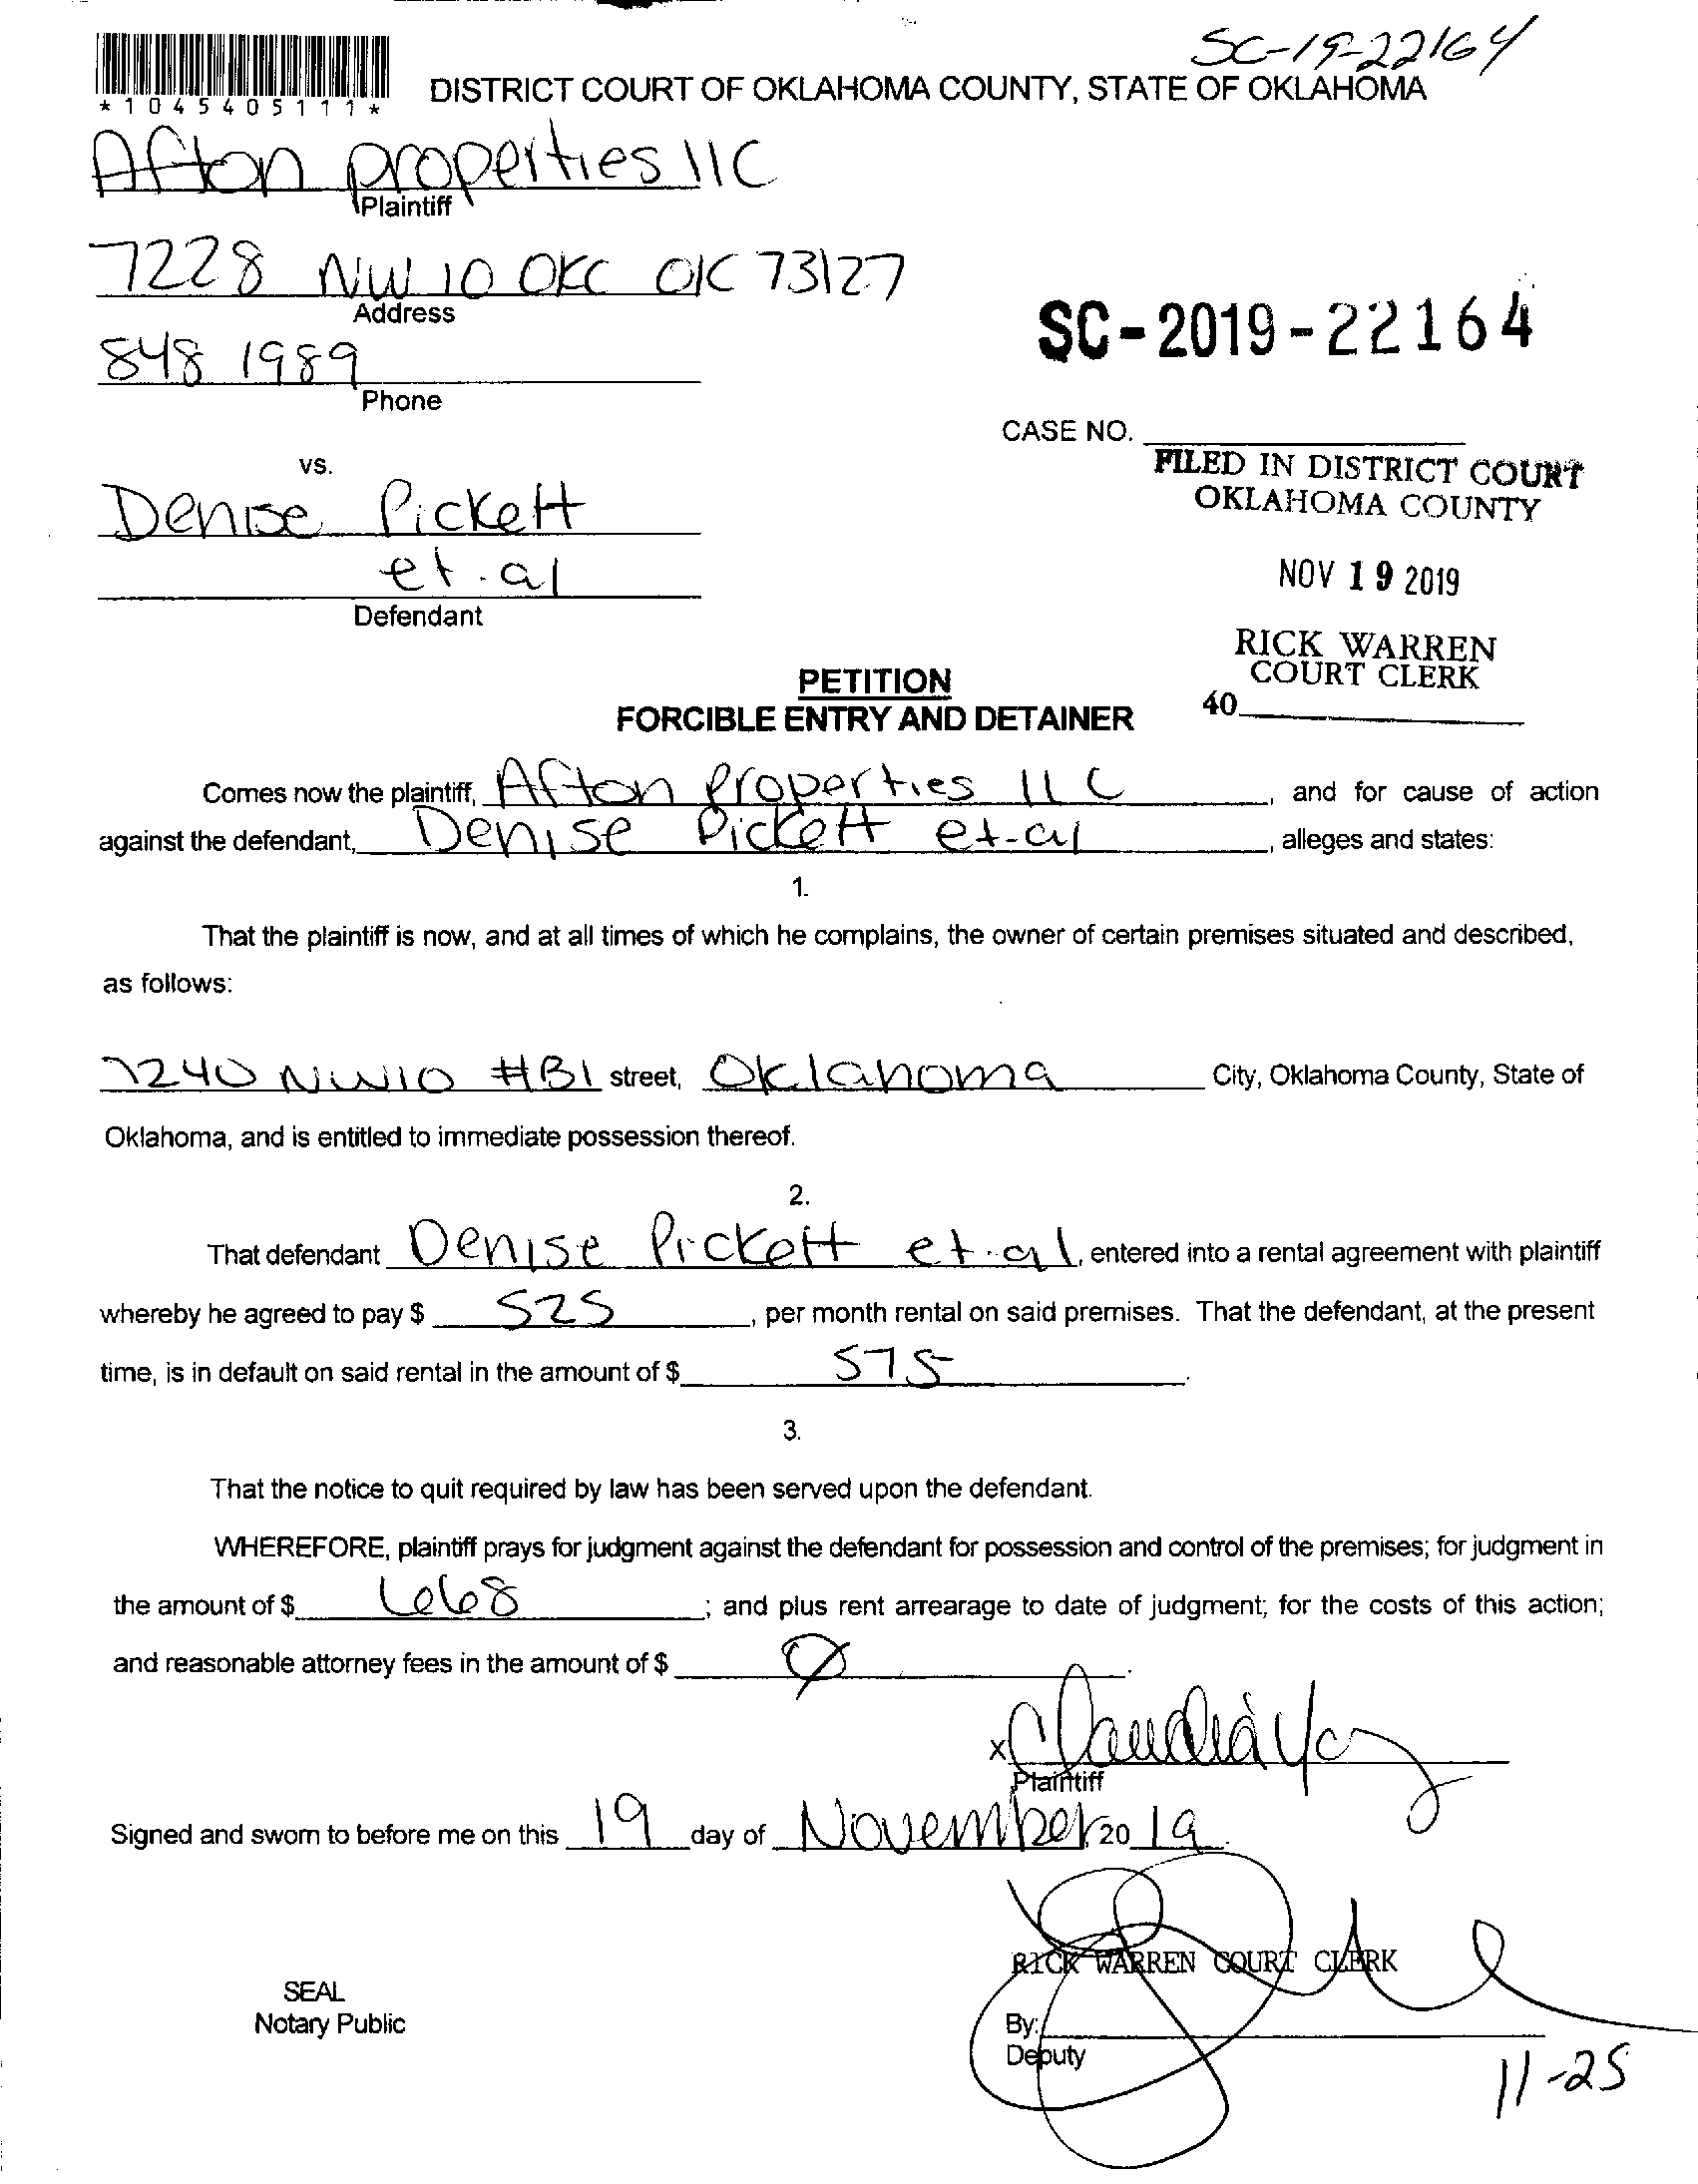 SC-19-22164
*1045405111*
DISTRICT COURT OF OKLAHOMA COUNTY, STATE OF OKLAHOMA
Afton properties llC
Plaintiff
7228 NW 10 OKC OK 73127
Address
848 1989
Phone
SC-2019-22164
CASE NO.
vs.
FILED IN DISTRICT COURT
OKLAHOMA COUNTY
Denise Pickett
et.al
Defendant
NOV 19 2019
RICK WARREN
COURT CLERK
40
PETITION
FORCIBLE ENTRY AND DETAINER
Comes now the plaintiff, Afton Properties llC, and for cause of action
against the defendant, Denise Pickett et-al, alleges and states:
1.
That the plaintiff is now, and at all times of which he complains, the owner of certain premises situated and described,
as follows:
7240 NW10 #B1 street, Oklahoma City, Oklahoma County, State of
Oklahoma, and is entitled to immediate possession thereof.
2.
That defendant Denise Pickett et.al, entered into a rental agreement with plaintiff
whereby he agreed to pay $ 525, per month rental on said premises. That the defendant, at the present
time, is in default on said rental in the amount of $ 575.
3.
That the notice to quit required by law has been served upon the defendant.
WHEREFORE, plaintiff prays for judgment against the defendant for possession and control of the premises; for judgment in
the amount of $ 668; and plus rent arrearage to date of judgment; for the costs of this action;
and reasonable attorney fees in the amount of $ Ø.
x Claudia
Plaintiff
Signed and sworn to before me on this 19 day of November, 20 19.
RICK WARREN COURT CLERK
SEAL
Notary Public
By:
Deputy
11-25